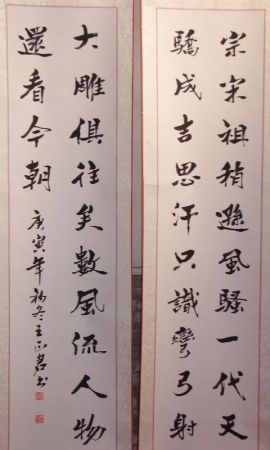 宗宋祖稍遜風騷一代天
驕成吉思汗只識彎弓射
大雕俱往矣數風流人物
還看今朝
庚寅年初冬王正君书